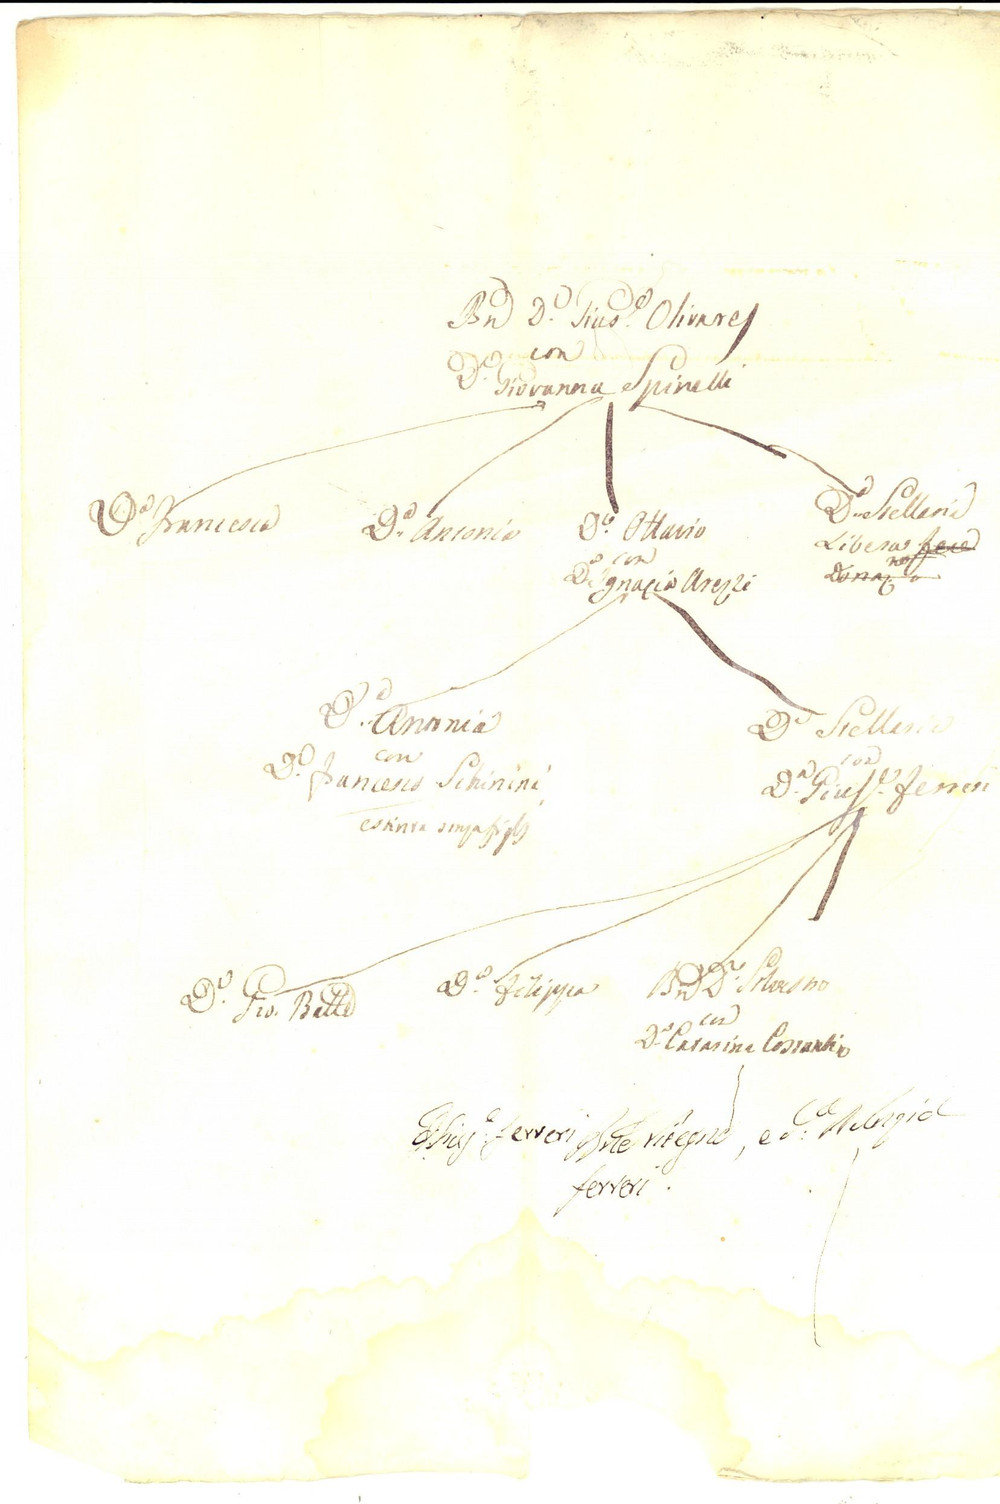 Bn D.n Gius.e Olivares
con
D.a Giovanna Spinelli
D.a Francesca
D.a Antonia
D.n Ottavio
con
D.a Ignazia Arezzi
D.a Stellaria
Libera
D.a Antonia
con
D.n Francesco Schinini
estinta senza figlj
D.a Stellaria
con
D.n Gius.e Ferreri
D.n Gio. Batta
D.a Filippa
Bn D.n Silvestro
con
D.a Catarina Cossentin
Ferreri, e
Ferreri.